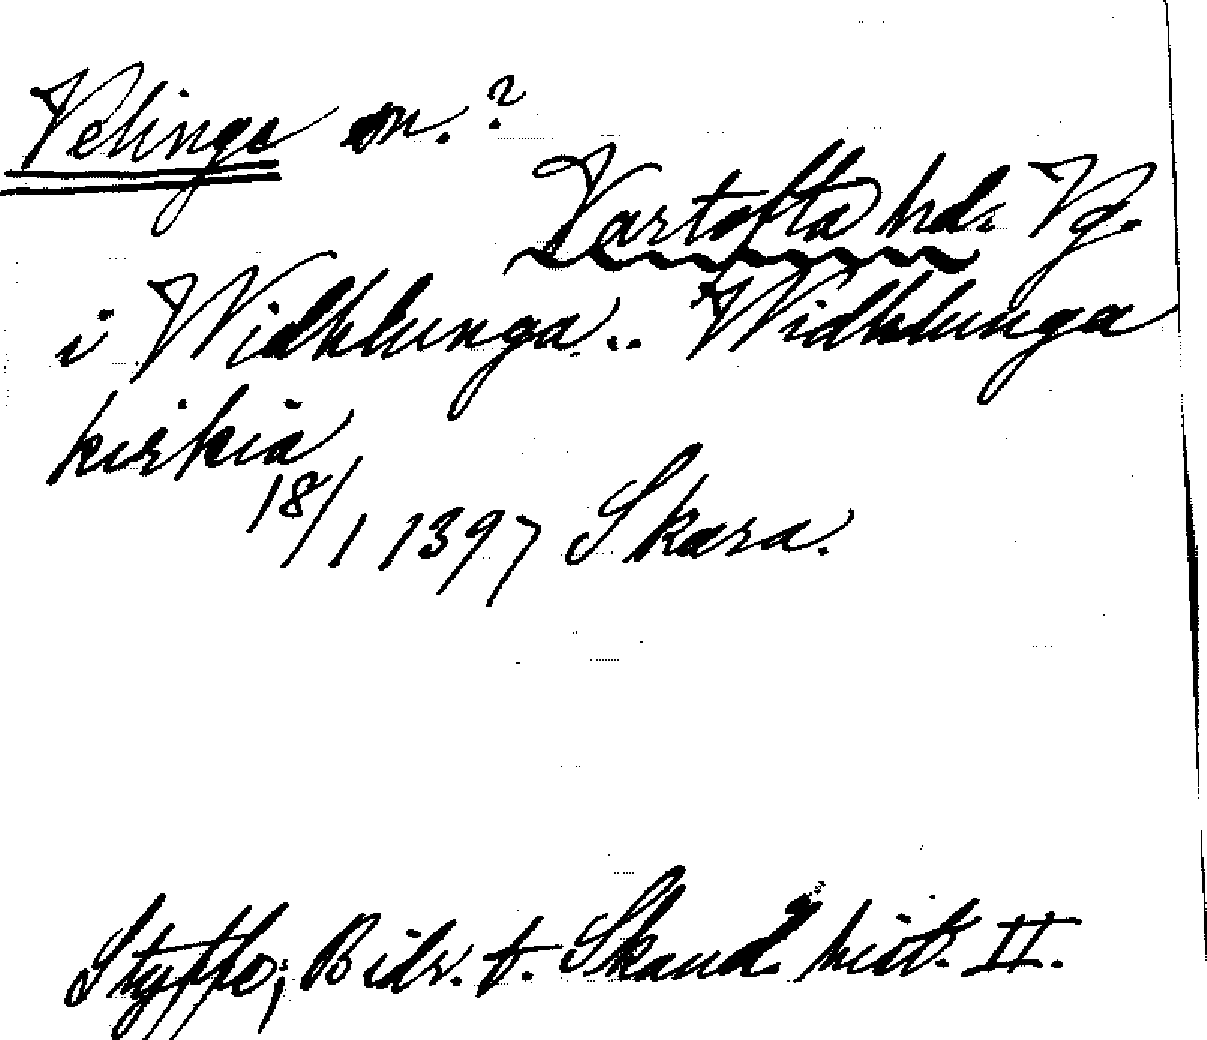 Velinge sn.?
Vartofta hd. Vg.
i Widhlunga.. Widhlunga
kirkia
18/1 1397 Skara.
Styffe, Bidr. t. Skand. hist. II.